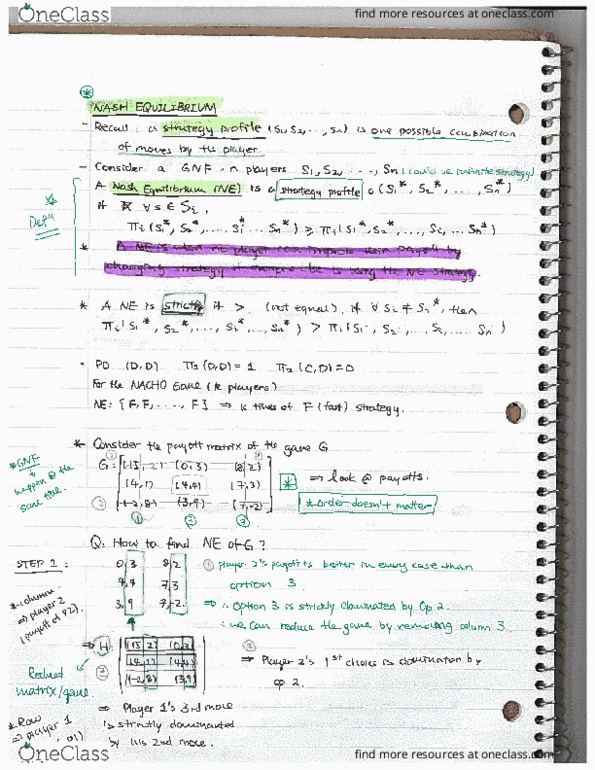 OneClass
find more resources at oneclass.com
NASH EQUILIBRIUM
- Recall: a strategy profile (S1, S2, ..., Sn) is one possible combination
of moves by the player.
- Consider a GNF n players S1, S2, ..., Sn (could be infinite strategy)
A Nash Equilibrium (NE) is a strategy profile (S1*, S2*, ..., Sn*)
if ∀ s ∈ Si,
Defn
πi(S1*, S2*, ... Si* ... Sn*) ≥ πi(S1*, S2*, ... Si, ... Sn*)
* A NE is when no player can improve their payoff by
changing strategy if everyone else is using the NE strategy.
* A NE is strict if > (not equal), if ∀ Si ≠ Si*, then
πi(S1*, S2*, ..., Si*, ..., Sn*) > πi(S1*, S2, ..., Si, ... Sn*)
· PD (D,D) π2(D,D) = 1 π2(C,D) = 0
For the NACHO Game (k players)
NE: {F, F, ..., F} ⇒ k times of F (fast) strategy.
* Consider the payoff matrix of the game G
*GNF
happen @ the
same time.
G = (-15, 2) (0, 3) (8, 2)
(4, 1) (4,4) (7,3)
(-2, 8) (3,9) (7,-2)
* ⇒ look @ payoffs.
*order doesn't matter
① ② ③
Q: How to find NE of G?
STEP 1:
*column
⇒ player 2
(payoff of P2)
0,3 8,2
4,4 7,3
3,9 7,-2
① player 2's payoff is better in every case than
option 3
⇒ ∴ option 3 is strictly dominated by Op 2.
∴ we can reduce the game by removing column 3.
⇒ H
(-15, 2) (0,3)
(4,1) (4,4)
(-2,8) (3,9)
Reduced
matrix/game
② ⇒ Player 2's 1st choice is dominated by
op 2.
*Row
⇒ player 1
⇒ Player 1's 3rd move
is strictly dominated
by his 2nd move.
OneClass
find more resources at oneclass.com